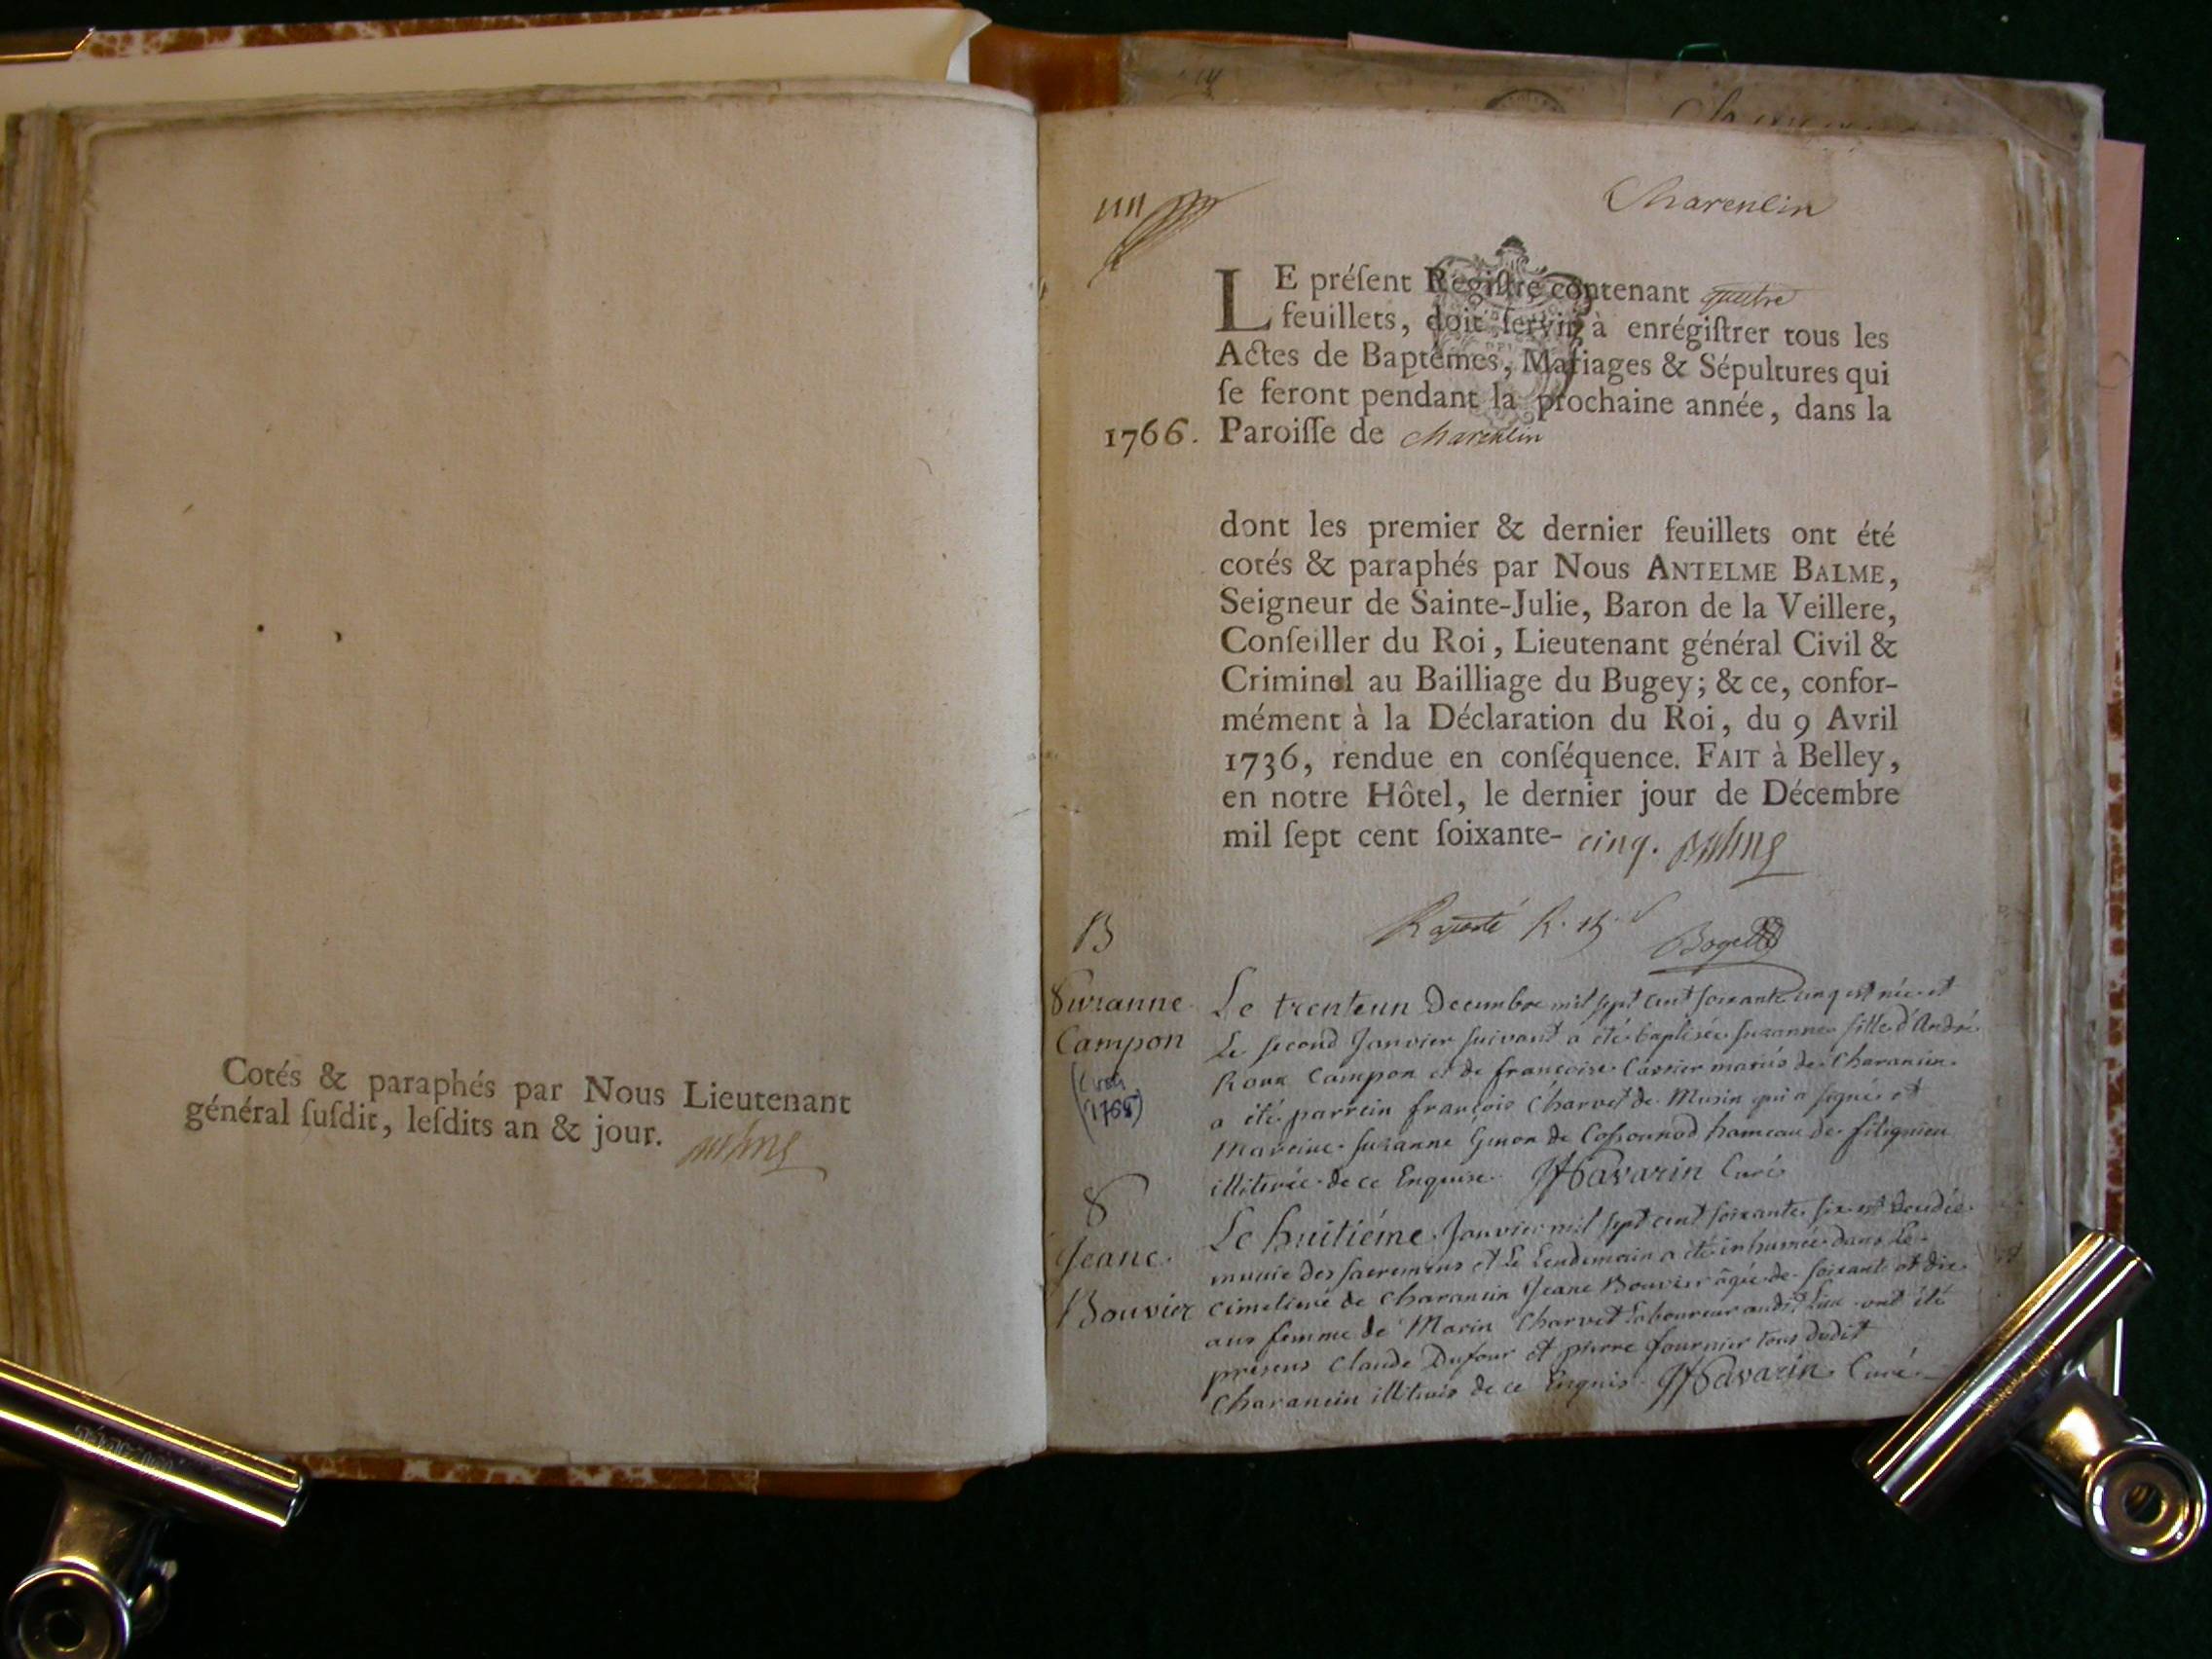 Cotés & paraphés par Nous Lieutenant
général ſuſdit, leſdits an & jour. Balme
Charencin
LE préſent Regiſtre contenant quatre
feuillets, doit ſervir à enrégiſtrer tous les
Actes de Baptêmes, Mariages & Sépultures qui
ſe feront pendant la prochaine année, dans la
1766. Paroiſſe de Charencin
dont les premier & dernier feuillets ont été
cotés & paraphés par Nous ANTELME BALME,
Seigneur de Sainte-Julie, Baron de la Veillere,
Conſeiller du Roi, Lieutenant général Civil &
Criminel au Bailliage du Bugey; & ce, confor-
mément à la Déclaration du Roi, du 9 Avril
1736, rendue en conſéquence. FAIT à Belley,
en notre Hôtel, le dernier jour de Décembre
mil ſept cent ſoixante- cinq. Balme
B
Suzanne
Campon
(1765)
Le trenteun Decembre mil sept cent soixante cinq est née et
Le second Janvier suivant a été baptisée suzanne fille d'André
Roux Campon et de françoise mariés de Charancin
a été parrein françois Charvet de Musin qui a signé et
Mareine suzanne de hameau de
illiterée de ce Enquise. Savarin Curé
S
Jeane
Bouvier
Le huitiéme Janvier mil sept cent soixante six est decedée
munie des sacremens et le Lendemain a été inhumée dans le
cimetiere de Charancin Jeane Bouvier âgée de soixante et dix
ans femme de Marin Charvet laboureur audit lieu ont été
presens Claude Dufour et pierre fournier tous dudit
Charancin illiterés de ce Enquis. Savarin Curé